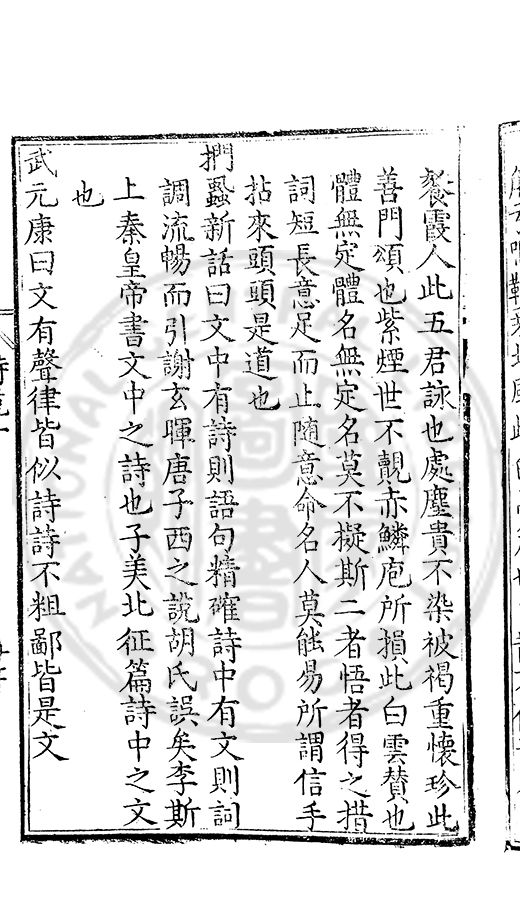 餐霞人此五君詠也處塵貴不染被褐重懷珍此
善門頌也紫煙世不覿赤鱗庖所損此白雲贊也
體無定體名無定名莫不擬斯二者悟者得之措
詞短長意足而止隨意命名人莫能易所謂信手
拈來頭頭是道也
捫蝨新話曰文中有詩則語句精確詩中有文則詞
調流暢而引謝玄暉唐子西之說胡氏誤矣李斯
上秦皇帝書文中之詩也子美北征篇詩中之文
也
武元康曰文有聲律皆似詩詩不粗鄙皆是文